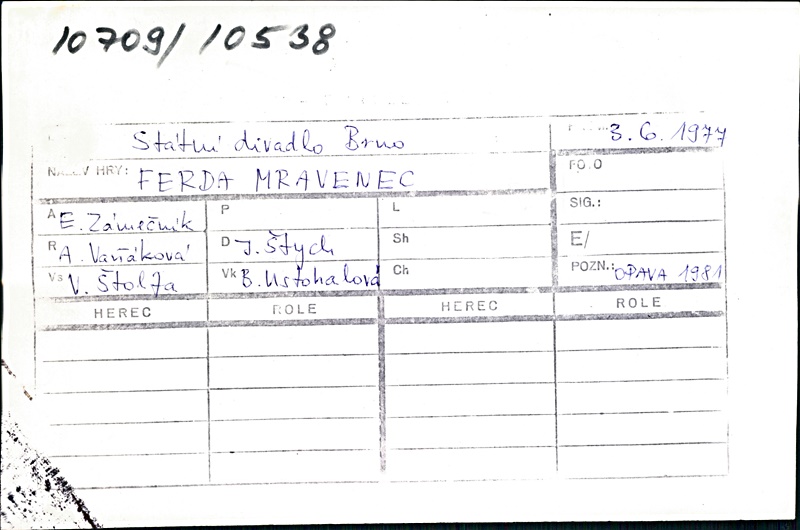 10709/10538
Státní divadlo Brno 3.6.1977
NÁZEV HRY: FERDA MRAVENEC FOTO
A E. Zámečník P L SIG.:
R A. Vaňáková D J. Štych Sh E/
Vs V. Štolfa Vk B. Ustohalová Ch POZN.: OPAVA 1981
HEREC ROLE HEREC ROLE